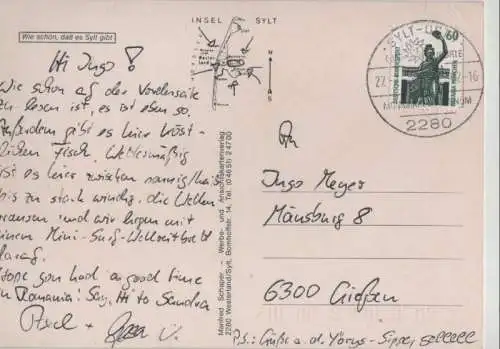 Wie schön, daß es Sylt gibt
INSEL SYLT
Hi Ingo!
Wie schon auf der Vorderseite
zu lesen ist, es ist eben so.
Außerdem gibt es hier köst-
lichen Fisch. Wettermäßig
ist es hier zwischen sonnig/heiß
bis zu stark windig, die Wellen
brausen und wir liegen mit
einem Mini-Surf-Wellenreitbrett
darauf.
Hope you had a good time
in Romania. Say Hi to Sandra
Axel +
Manfred Scheyer - Werbe- und Ansichtskartenverlag
2280 Westerland/Sylt, Bomhoffstr. 14, Tel. (04651) 24700
60
SYLT
27.
2280
An
Ingo Meyer
Mäusburg 8
6300 Gießen
P.S.: Grüße a. d.